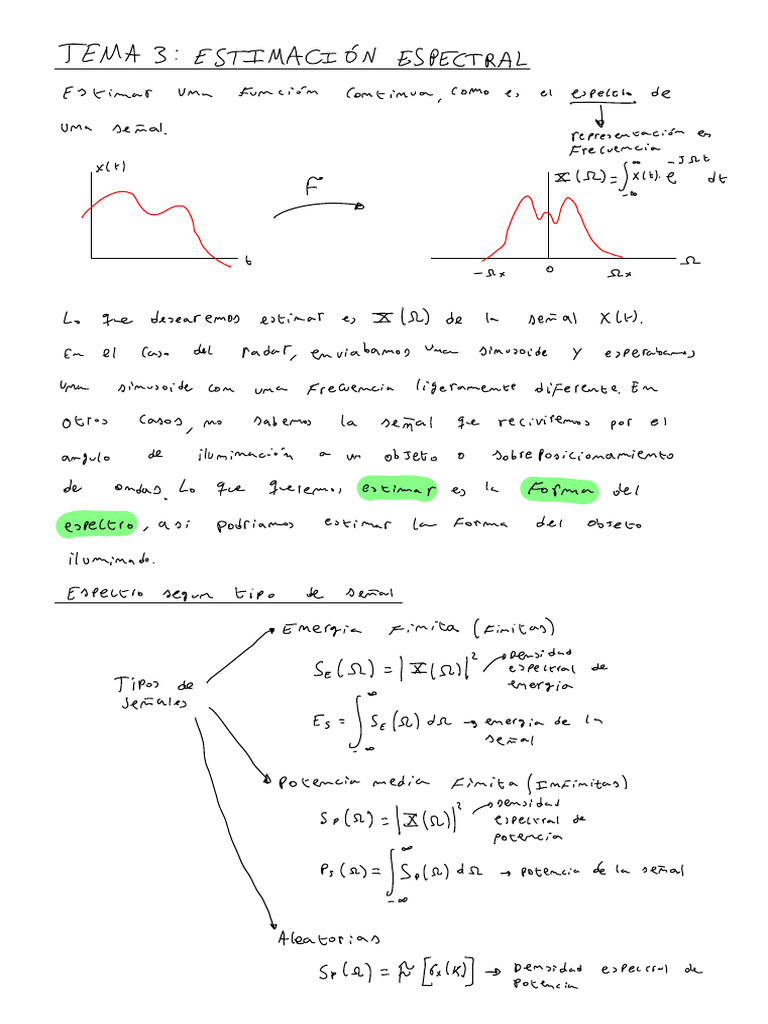 TEMA 3: ESTIMACIÓN ESPECTRAL
Estimar una función continua, como es el espectro de
una señal.
representación en
Frecuencia
x(t)
F
X(Ω) = ∫_{-∞}^{∞} x(t)· e^{-JΩt} dt
t
-Ωx 0 Ωx Ω
Lo que desearemos estimar es X(Ω) de la señal X(t).
En el caso del radar, enviabamos una sinusoide y esperabamos
una sinusoide con una frecuencia ligeramente diferente. En
otros casos, no sabemos la señal que reciviremos por el
angulo de iluminación a un objeto o sobreposicionamiento
de ondas. Lo que queremos estimar es la forma del
espectro, asi podriamos estimar la forma del objeto
iluminado.
Espectro segun tipo de señal
Energia Finita (Finitas)
S_E(Ω) = |X(Ω)|² → Densidad
espectral de
energia
Tipos de
señales
E_s = ∫_{-∞}^{∞} S_E(Ω) dΩ → energia de la
señal
Potencia media Finita (Infinitas)
S_P(Ω) = |X(Ω)|² → Densidad
espectral de
potencia
P_s(Ω) = ∫_{-∞}^{∞} S_P(Ω) dΩ → potencia de la señal
Aleatorias
S_P(Ω) = [r_x(K)] → Densidad espectral de
potencia